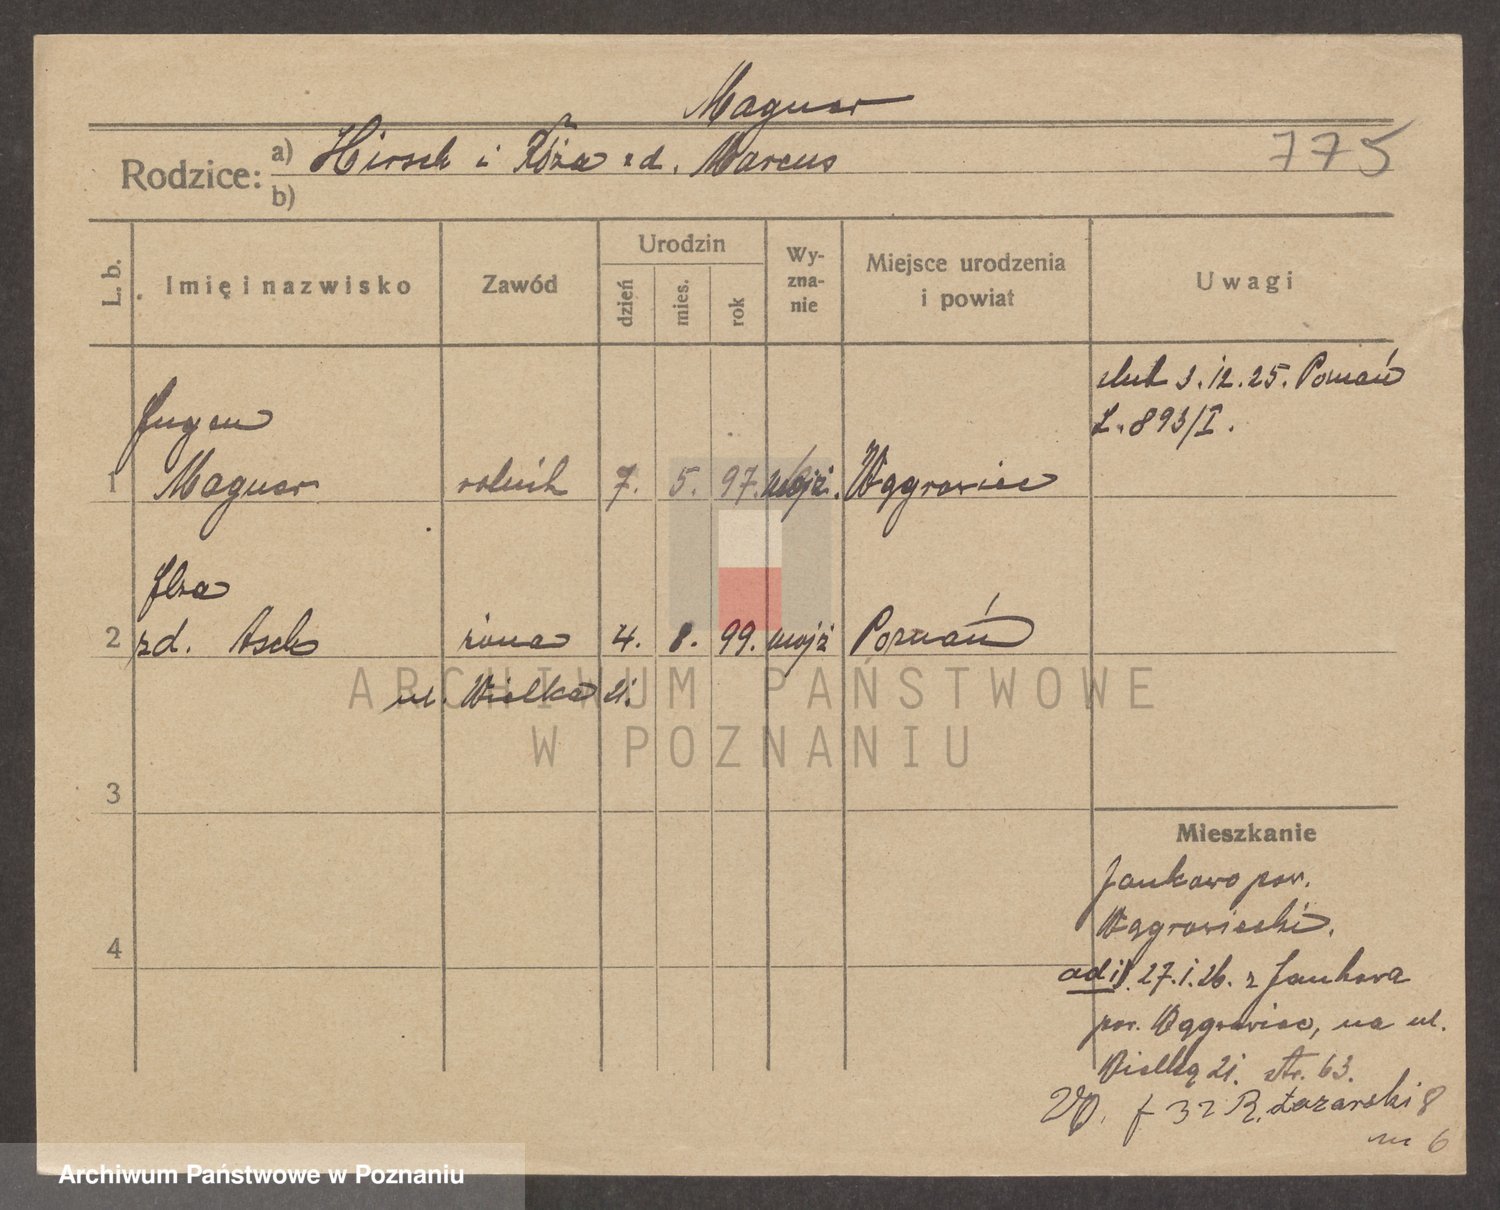 Magner
775
Rodzice:
a) Hirsch i Róża zd. Marcus
b)
L. b.
Imię i nazwisko
Zawód
Urodzin
dzień
mies.
rok
Wy-
zna-
nie
Miejsce urodzenia
i powiat
Uwagi
ślub 3.12.25. Poznań
L. 893/I.
Jugen
1 Magner rolnik 7. 5. 97. mojż. Wągrowiec
Elza
2 zd. Asch żona 4. 8. 99. mojż Poznań
ul. Wielka 21.
3
4
Mieszkanie
Jankowo pow.
Wągrowiecki.
ad 1/. 27.1.26. z Jankowa
pow. Wągrowiec, na ul.
Wielką 21. str. 63.
Łazarski 8
m 6
ARCHIWUM PAŃSTWOWE
W POZNANIU
Archiwum Państwowe w Poznaniu